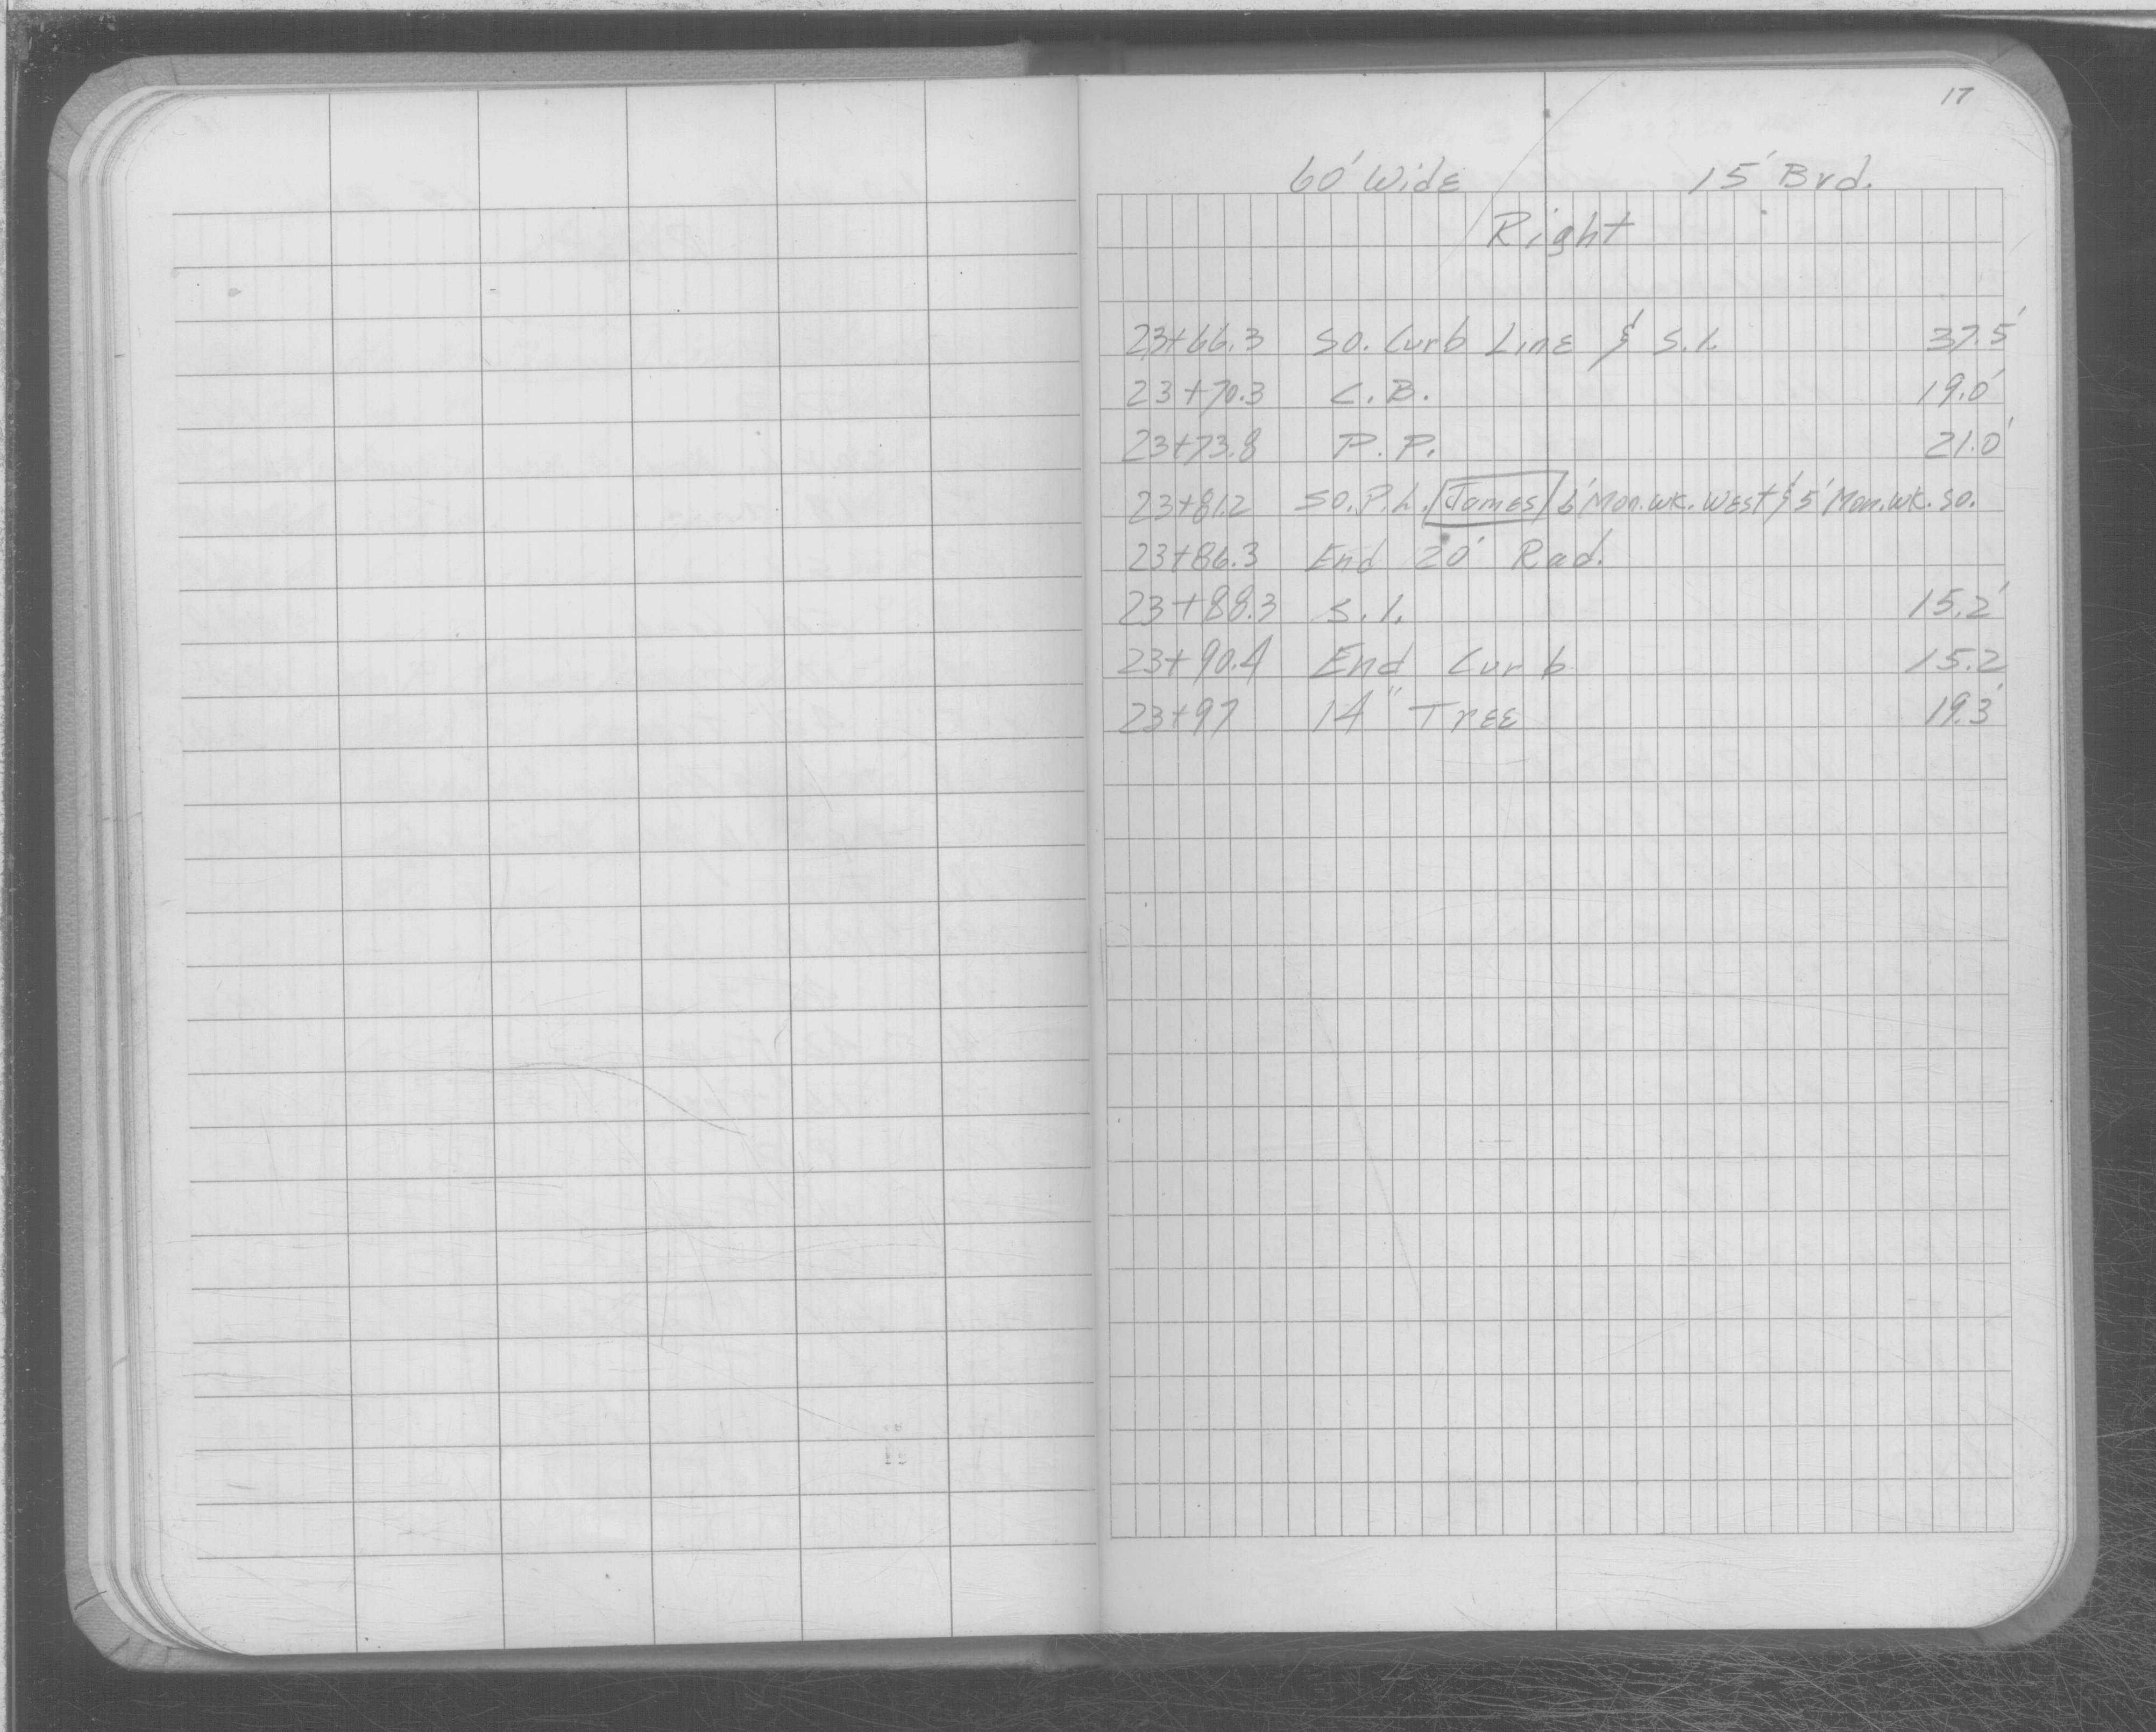 17
60' Wide 15' Brd.
Right
23+66.3 So. Curb Line & S.I. 37.5'
23+70.3 C.B. 19.0'
23+73.8 P.P. 21.0'
23+81.2 So. P.L. James 6' Mon. wk. West & 5' Mon. wk. So.
23+86.3 End 20' Rad.
23+88.3 S.I. 15.2'
23+90.4 End Curb 15.2
23+97 14" Tree 19.3'